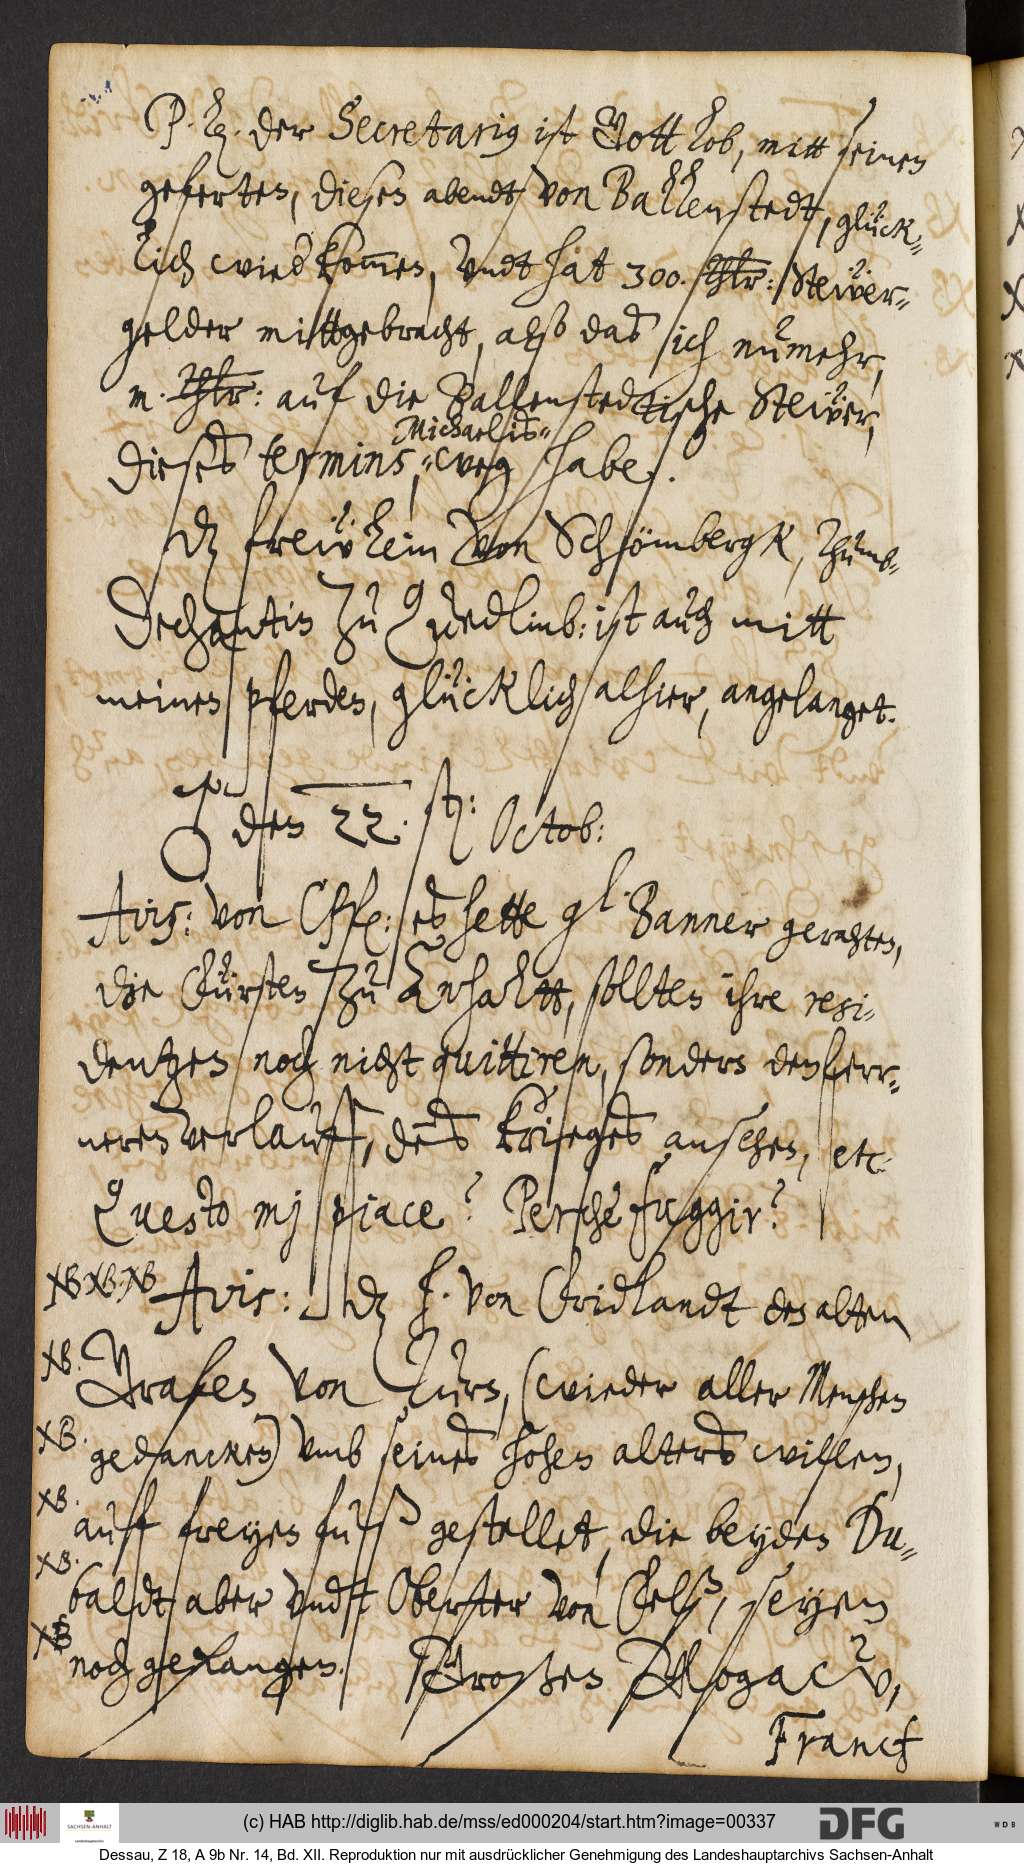 P. L. der Secretarius ist Gott lob, mitt seinen
geferten, diesen abendt, von Ballenstedt, glück-
lich wied[er] kommen, vndt hat 300. Thlr: Steüer-
gelder mittgebracht, also das ich numehr,
m. Thlr: auf die Ballenstedtische Steüer,
Michaelis-
dieses termins, weg habe.
Die freülein von Schömbergk, Thumb-
Dechantin zu Quedlinb: ist auch mitt
meinen pferden, glücklich alhier, angelanget.
♂ den 22. st: Octob:
Avis: von Cphe: es hette gl. Banner gerahten,
die Fürsten zu Anhaltt, sollten ihre resi-
dentzen noch nicht quittiren, sondern den ferr-
neren verlauff, des krieges ansehen, etc:
Questo mj piace? Perche fuggir?
NB NB NB Avis: das h. von Fridlandt den alten
NB. Grafen von Turn, (wieder aller Menschen
NB. gedancken) vmb seines hohen alters willen,
NB. auff freyen fuß gestellet, die beyden Du-
NB. baldt aber vndt Oberster von Felß, seyen
NB noch gefangen. Großen Glogaw,
Francf
(c) HAB http://diglib.hab.de/mss/ed000204/start.htm?image=00337
SACHSEN-ANHALT
Landeshauptarchiv
DFG
WDB
Dessau, Z 18, A 9b Nr. 14, Bd. XII. Reproduktion nur mit ausdrücklicher Genehmigung des Landeshauptarchivs Sachsen-Anhalt